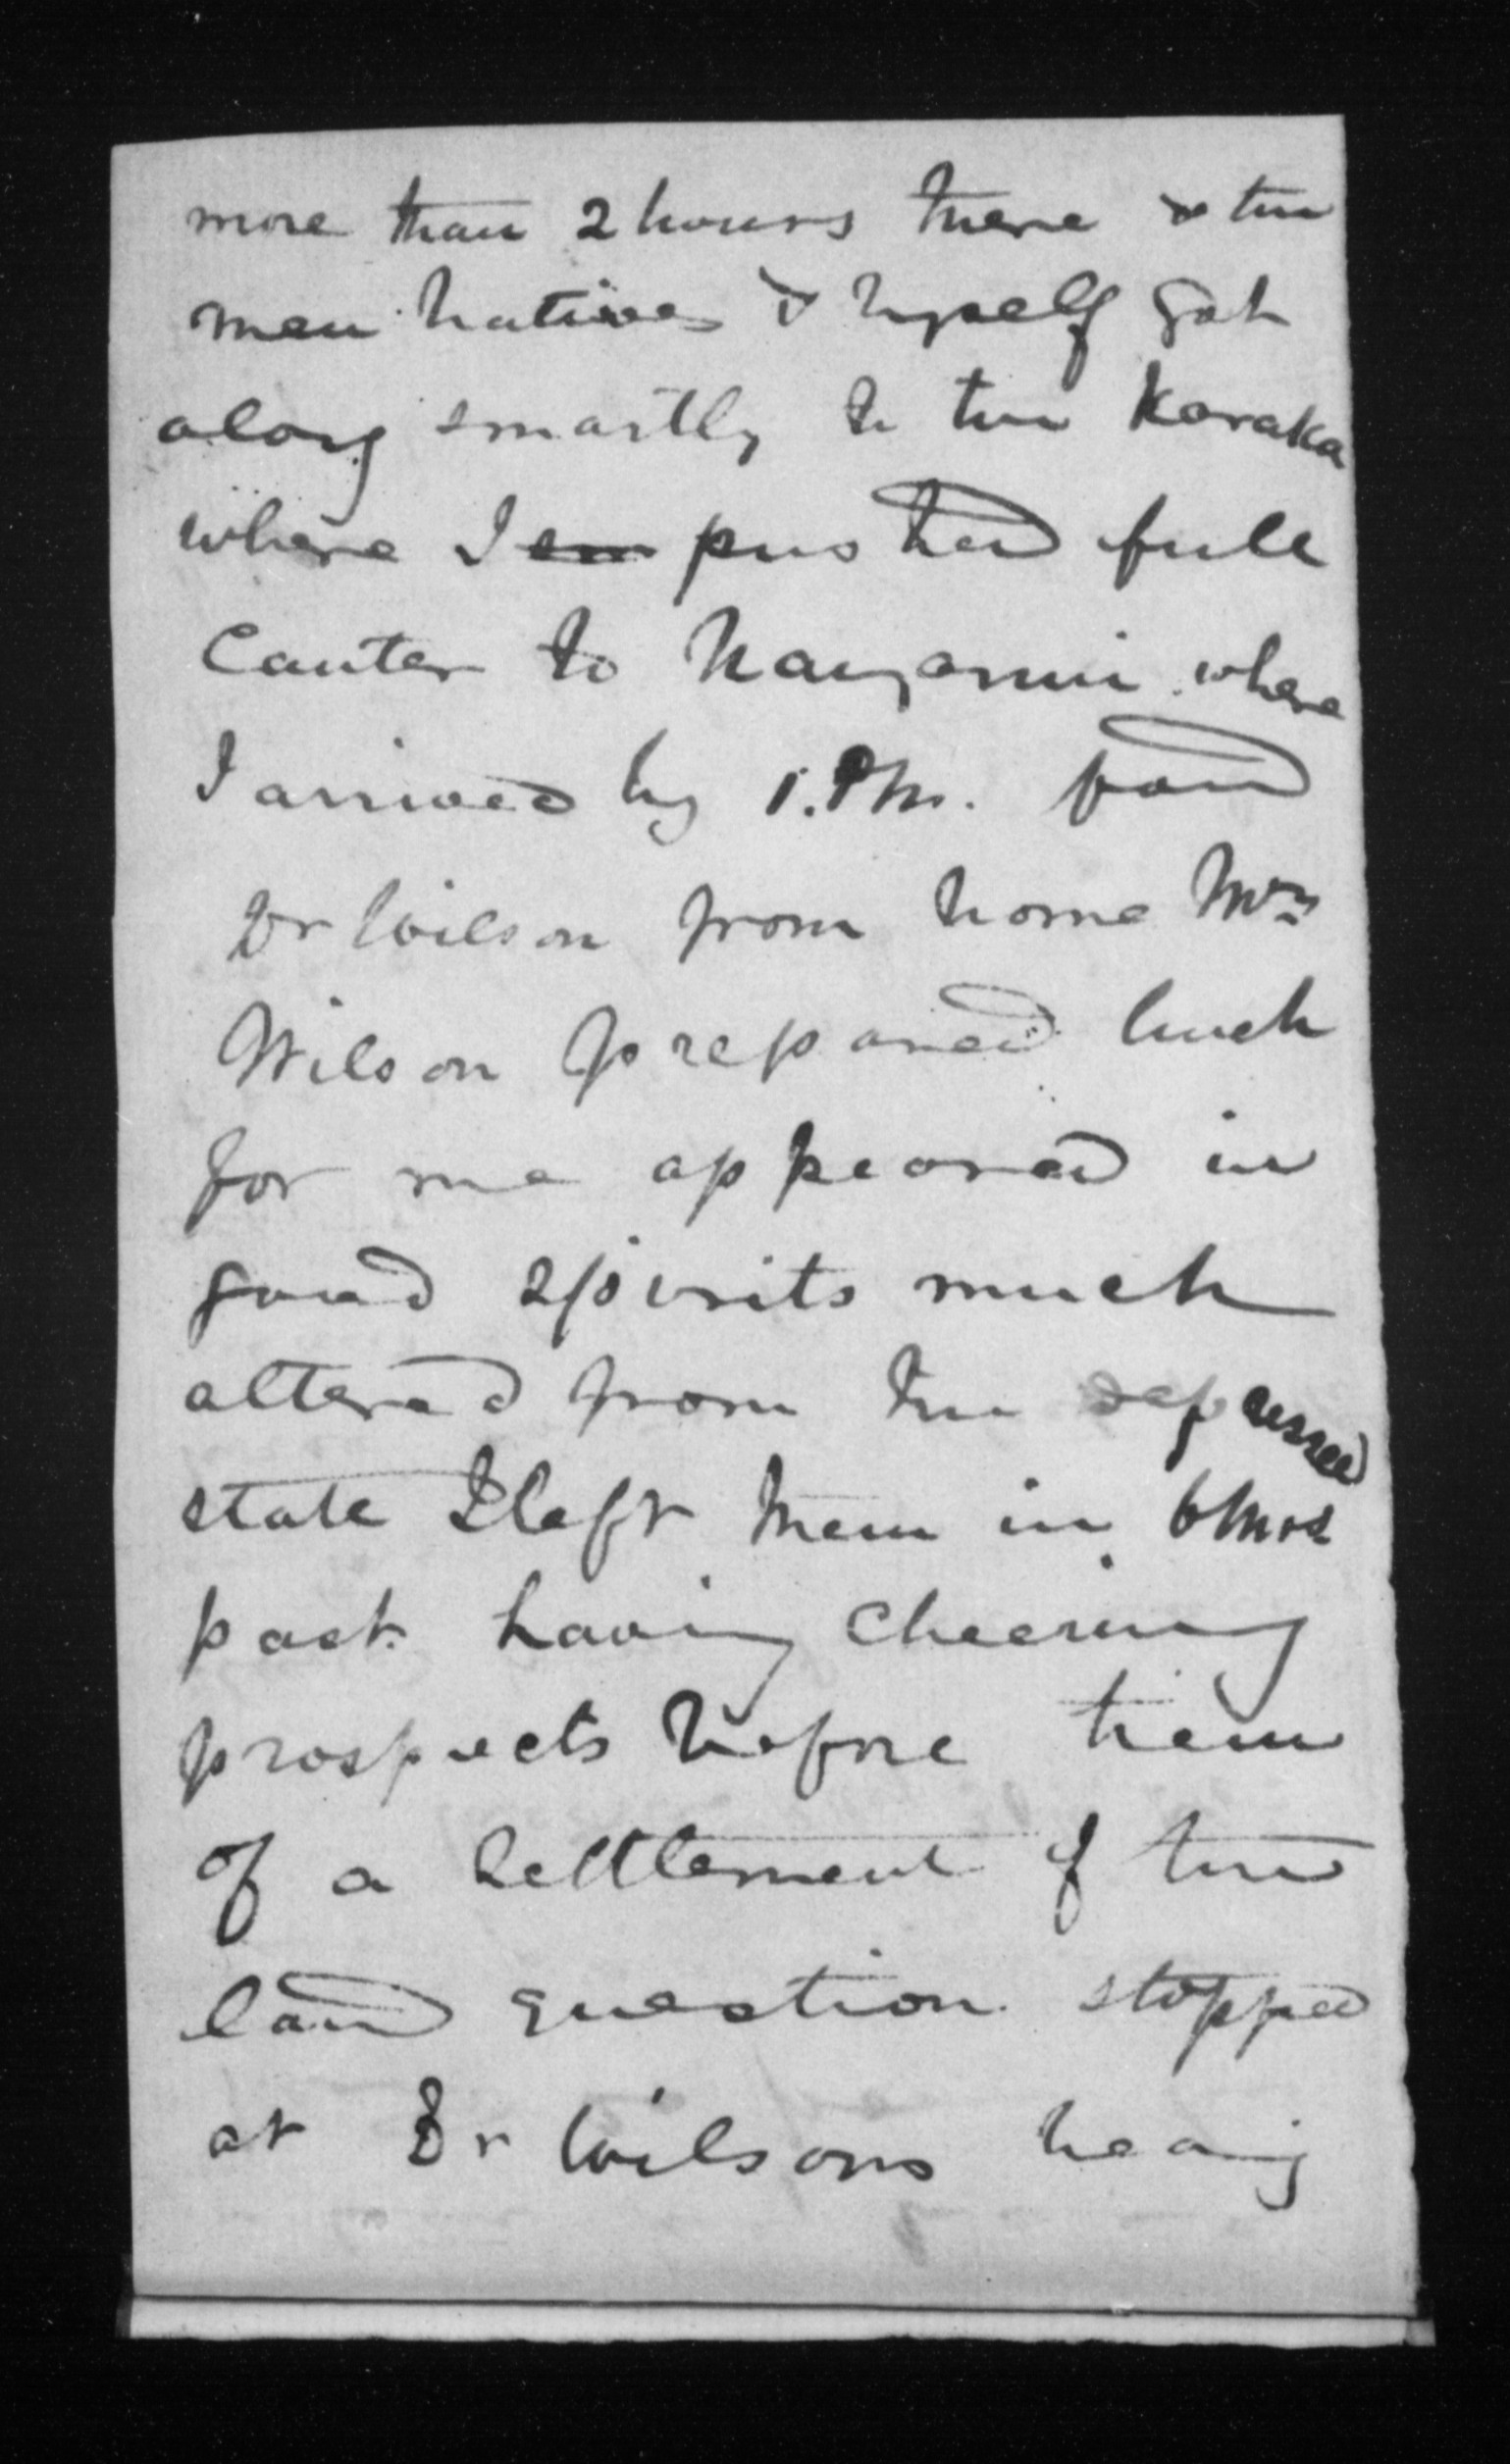 more than 2 hours there & the
men natives & myself got
along smartly to the Karaka
where I pushed full
Canter to where
I arrived by 1.PM. found
Dr Wilson from home Mrs
Wilson prepared lunch
for me appeared in
good spirits much
altered from the depressed
state I left them in 6 Mos
past having cheering
prospects before them
of a settlement of the
land question. stopped
at Dr Wilsons